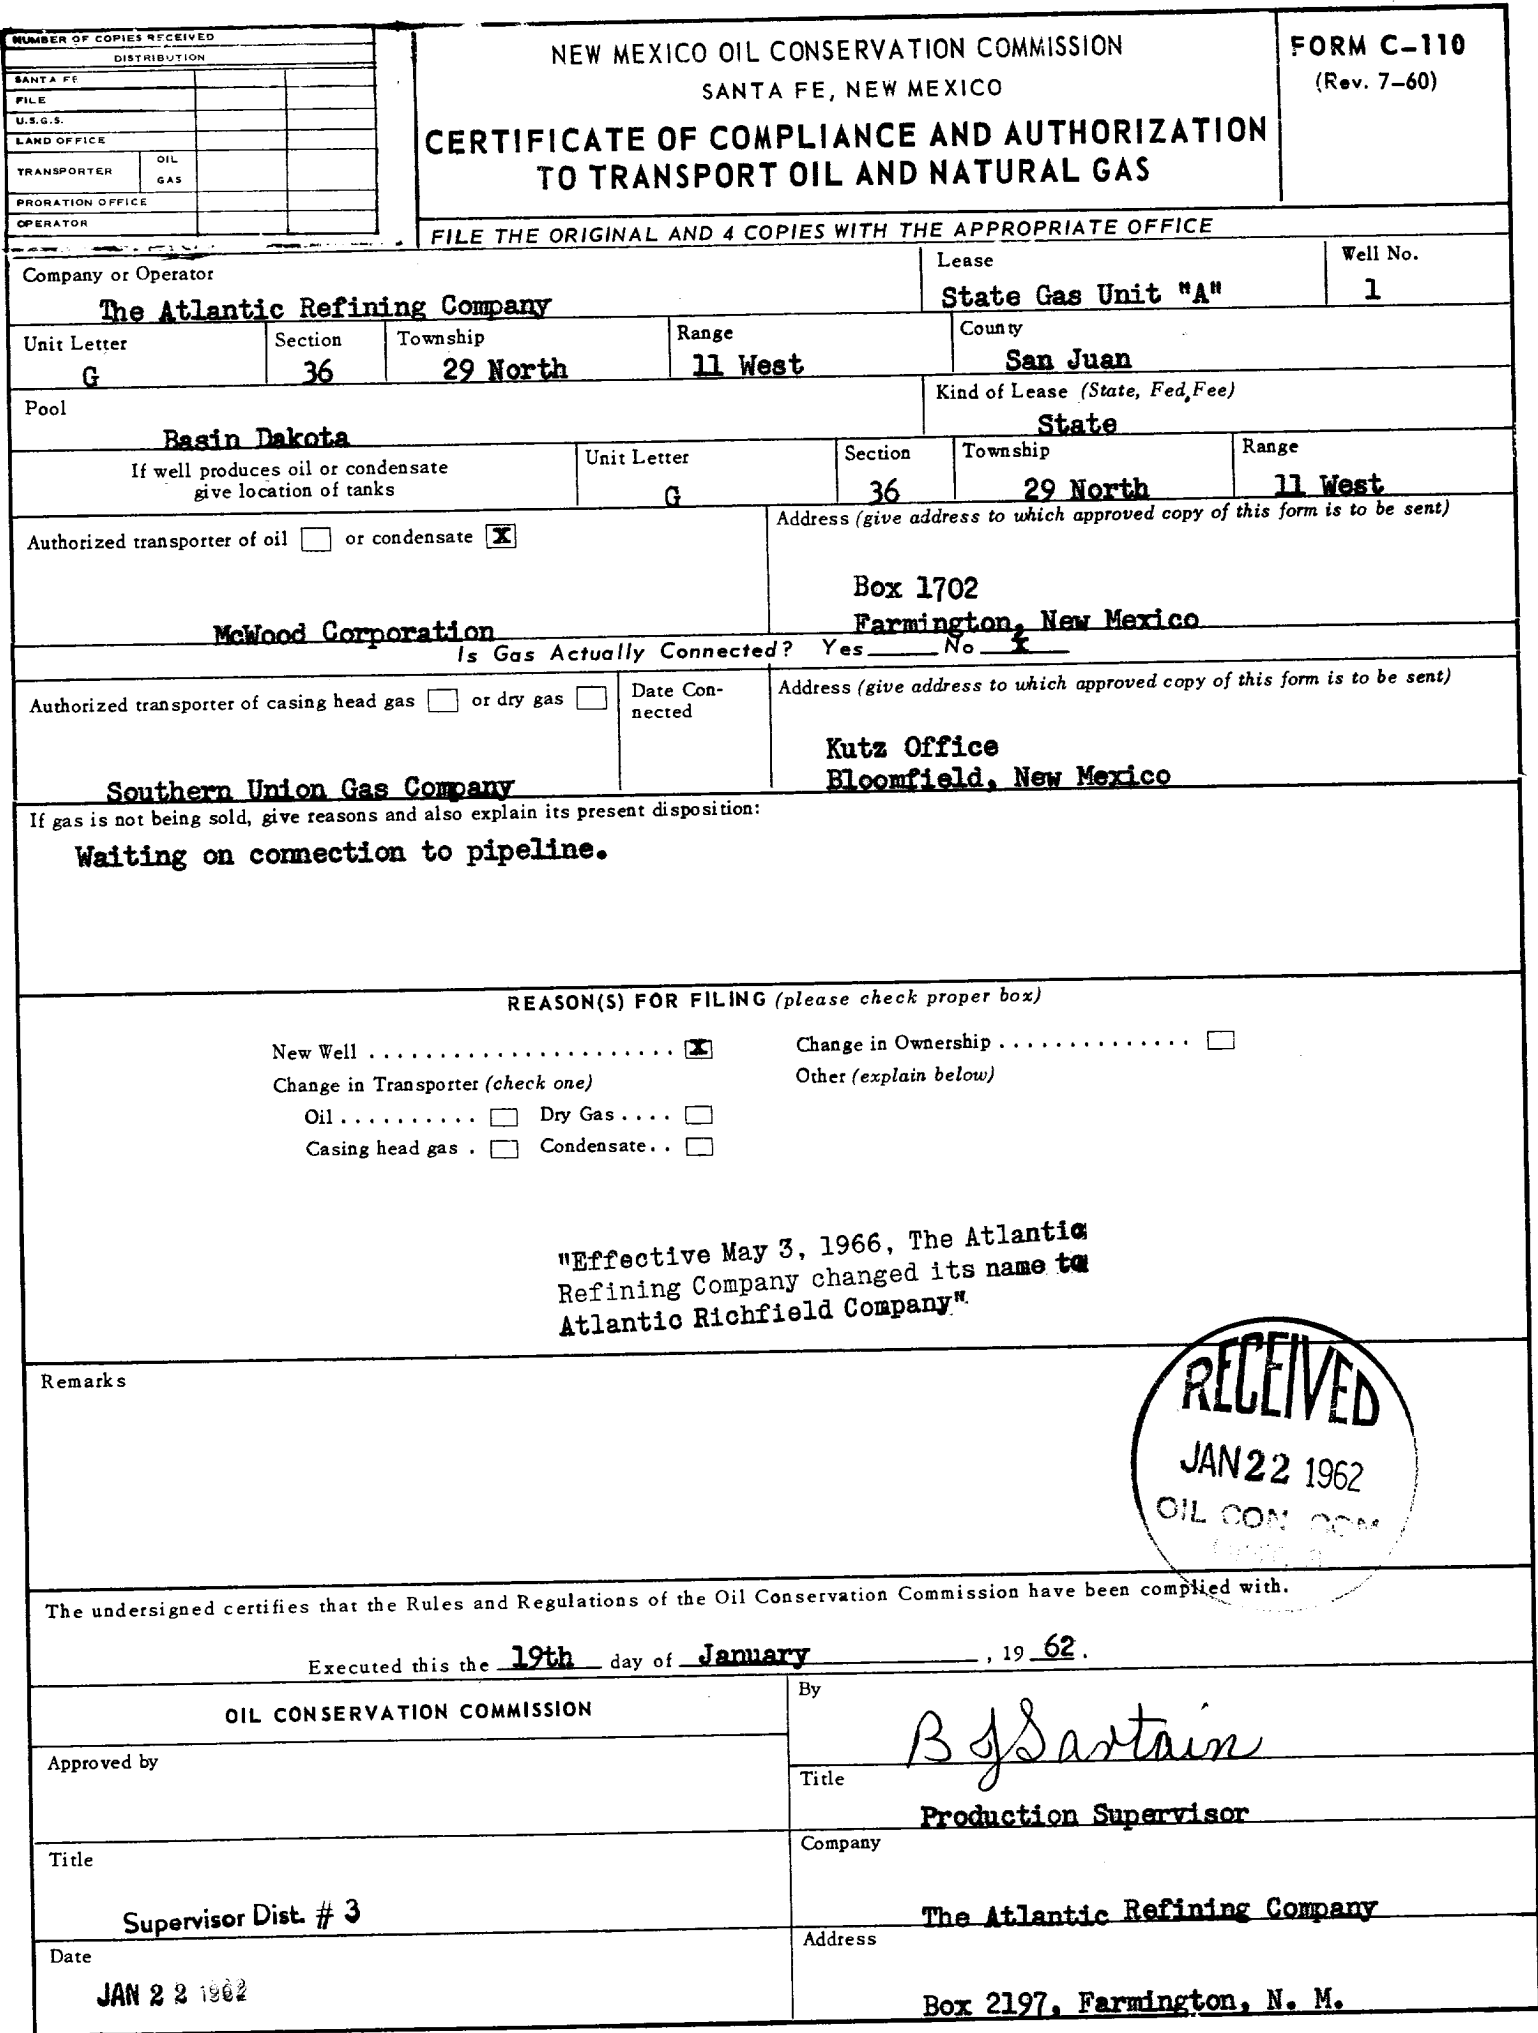 NUMBER OF COPIES RECEIVED
DISTRIBUTION
SANTA FE
FILE
U.S.G.S.
LAND OFFICE
TRANSPORTER OIL
GAS
PRORATION OFFICE
OPERATOR
NEW MEXICO OIL CONSERVATION COMMISSION
SANTA FE, NEW MEXICO
CERTIFICATE OF COMPLIANCE AND AUTHORIZATION
TO TRANSPORT OIL AND NATURAL GAS
FORM C-110
(Rev. 7-60)
FILE THE ORIGINAL AND 4 COPIES WITH THE APPROPRIATE OFFICE
Company or Operator
The Atlantic Refining Company
Lease
State Gas Unit "A"
Well No.
1
Unit Letter
G
Section
36
Township
29 North
Range
11 West
County
San Juan
Pool
Basin Dakota
Kind of Lease (State, Fed, Fee)
State
If well produces oil or condensate
give location of tanks
Unit Letter
G
Section
36
Township
29 North
Range
11 West
Authorized transporter of oil or condensate X
McWood Corporation
Address (give address to which approved copy of this form is to be sent)
Box 1702
Farmington, New Mexico
Is Gas Actually Connected? Yes No X
Authorized transporter of casing head gas or dry gas
Southern Union Gas Company
Date Con-
nected
Address (give address to which approved copy of this form is to be sent)
Kutz Office
Bloomfield, New Mexico
If gas is not being sold, give reasons and also explain its present disposition:
Waiting on connection to pipeline.
REASON(S) FOR FILING (please check proper box)
New Well . . . . . . . . . . . . . . . . . . . . . . X
Change in Ownership . . . . . . . . . . . . . .
Change in Transporter (check one)
Other (explain below)
Oil . . . . . . . . . . Dry Gas . . . .
Casing head gas . Condensate . .
"Effective May 3, 1966, The Atlantic
Refining Company changed its name to
Atlantic Richfield Company".
Remarks
RECEIVED
JAN 22 1962
OIL CON. COM
The undersigned certifies that the Rules and Regulations of the Oil Conservation Commission have been complied with.
Executed this the 19th day of January , 19 62.
OIL CONSERVATION COMMISSION
Approved by
Title
Supervisor Dist. # 3
Date
JAN 22 1962
By
B J Sartain
Title
Production Supervisor
Company
The Atlantic Refining Company
Address
Box 2197, Farmington, N. M.